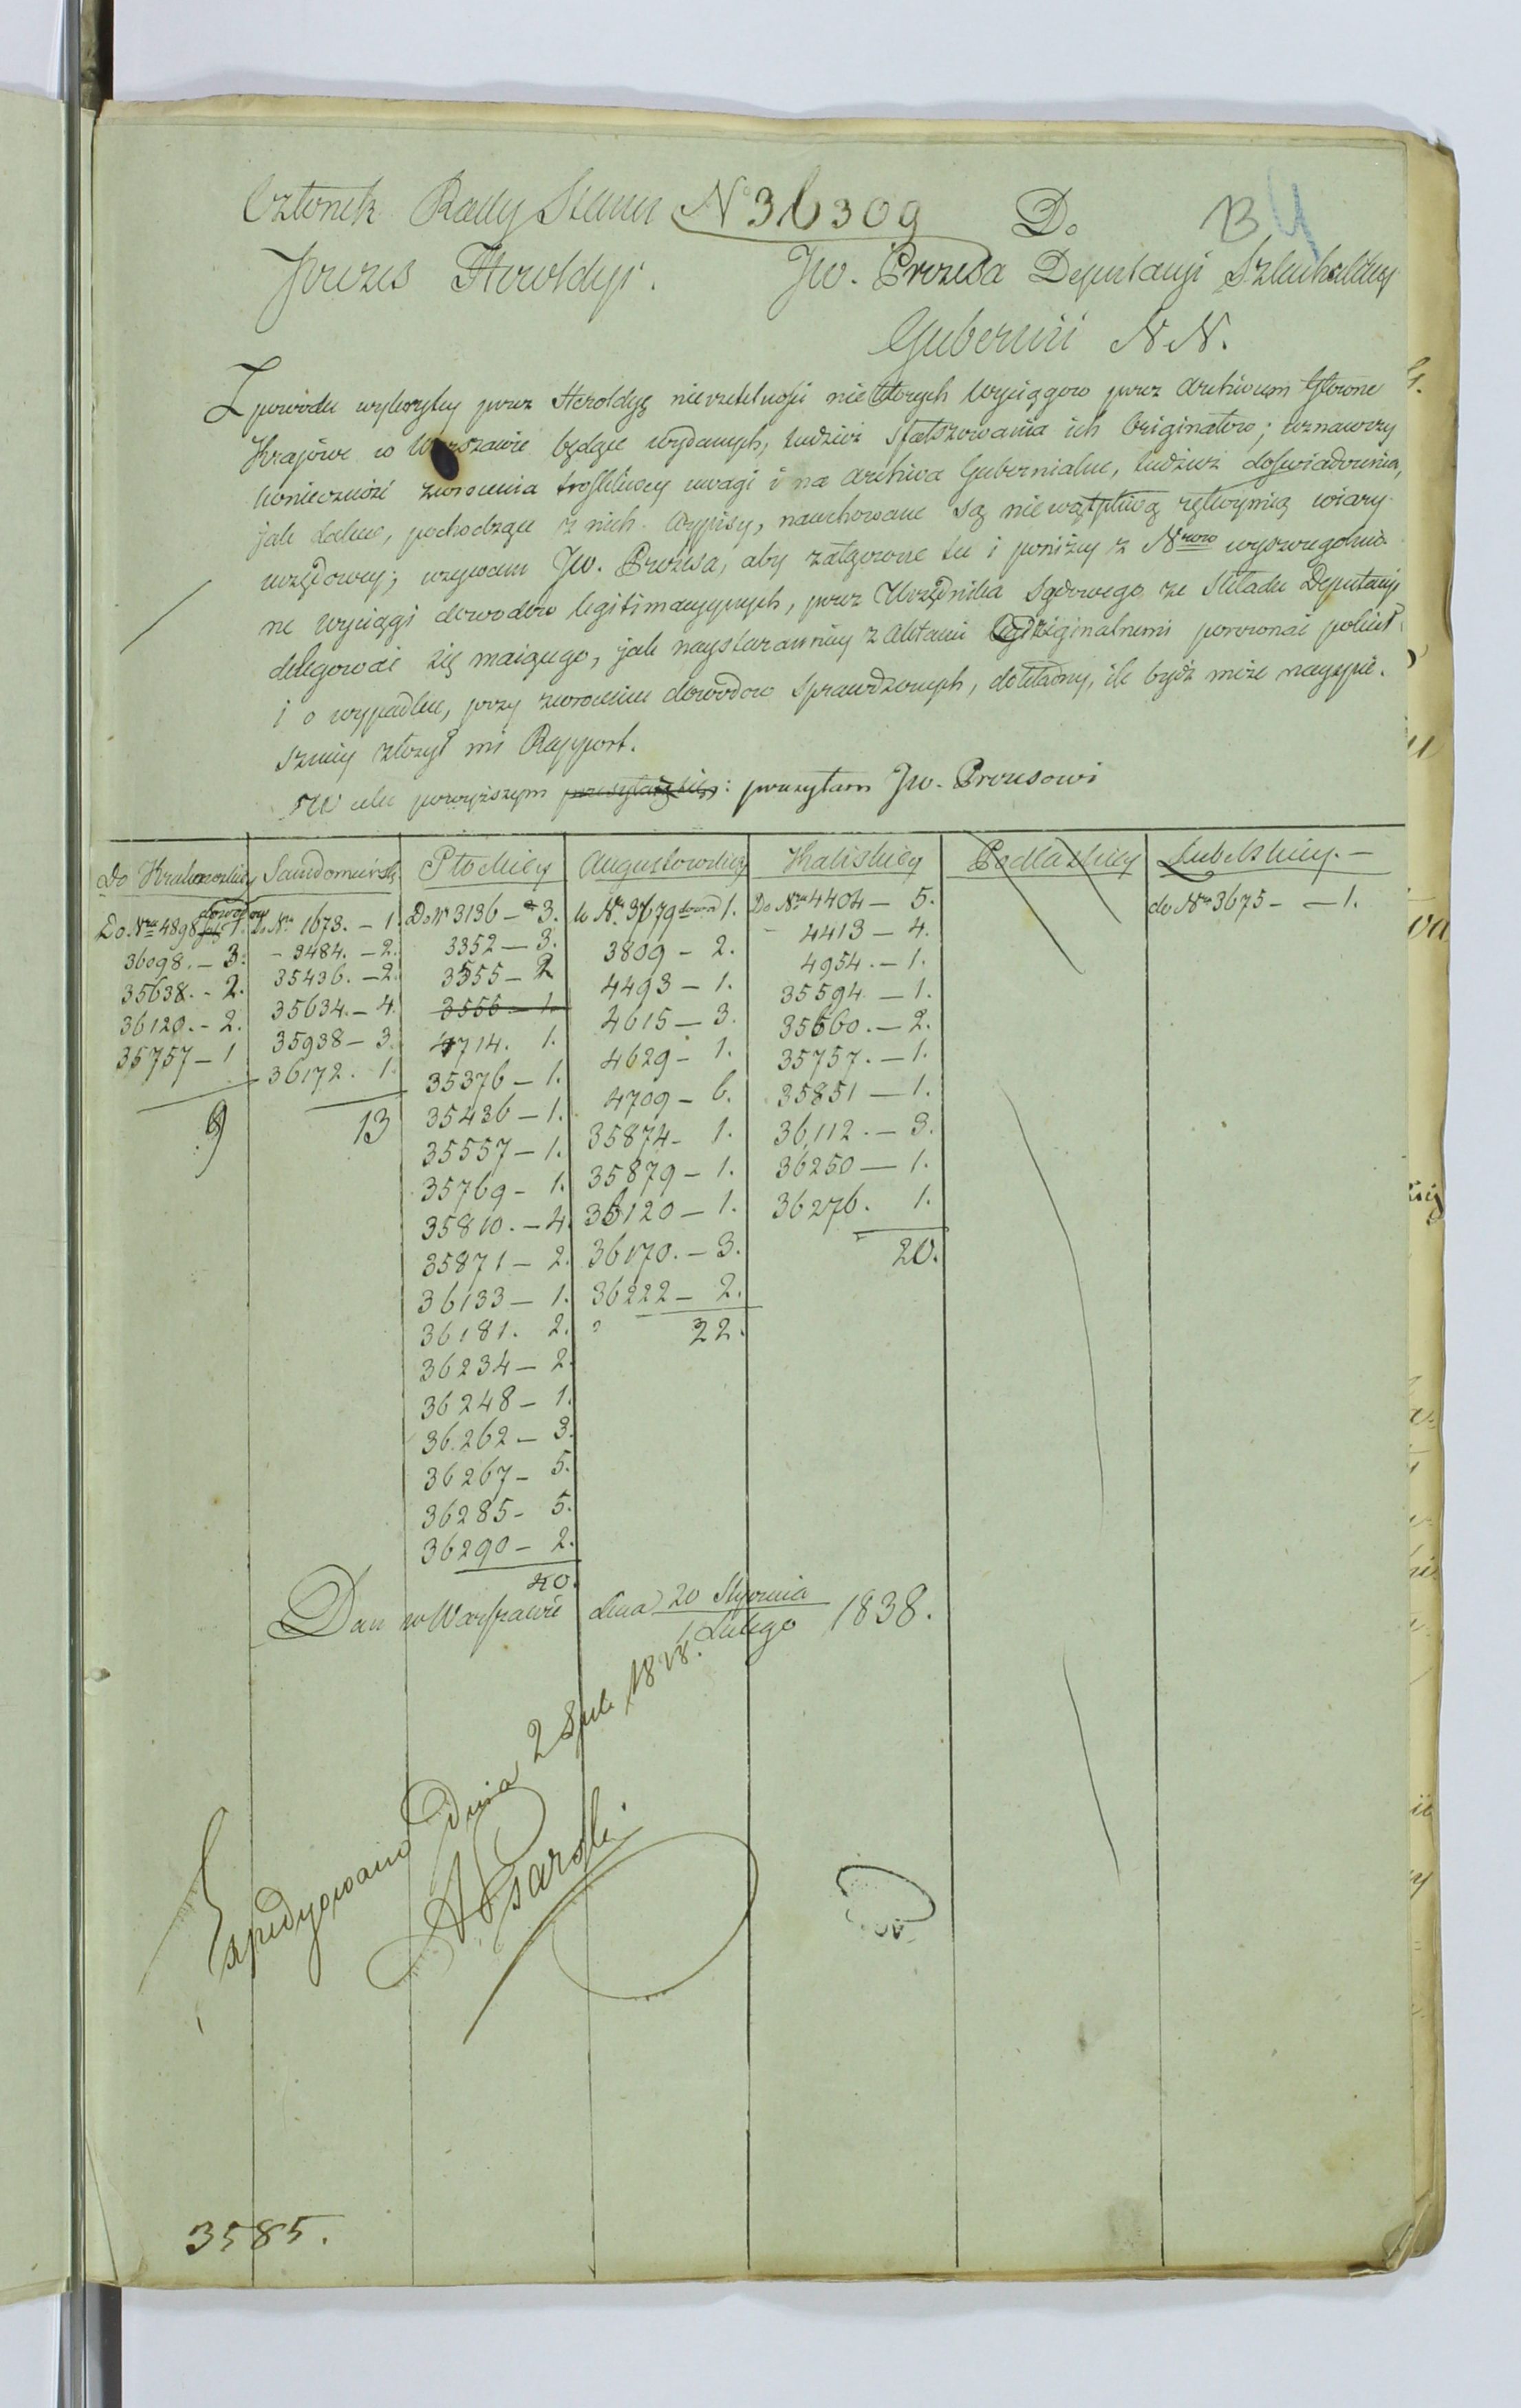 Członek Rady Stanu
Prezes Heroldyi.
No 36309
Do
B 4
Jw. Prezesa Deputacyi Szlacheckiey
Gubernii N N.
Z powodu wykrytey przez Heroldyę nierzetelności niektórych Wyciągów przez Archiwum Główne
Krajowe w Warszawie będące wydanych, tudzież sfałszowania ich Originałów; uznawszy
konieczność zwrócenia troskliwey uwagi i na Archiwa Gubernialne, tudzież doświadczenia,
jak dalece, pochodzące z nich Wypisy, nacechowane są niewątpliwą rękoymią wiary
urzędowey; wzywam Jw. Prezesa, aby załączone tu i poniżey z Nrów wyszczególnio
ne wyciągi dowodów legitimacyynych, przez Urzędnika Sądowego ze składu Deputacyi
delegować się maiącego, jak naystaranniey z Aktami originalnemi porównać polecił
i o wypadku, przy zwróceniu dowodów sprawdzonych, dokładny, ile bydź może nayspie-
szniey złożył mi Rapport.
W celu powyższym przesyłam Jw. Prezesowi
Do Krakowskiey
Do Nru 4898 dowodów 1.
36098. - 3.
35638. - 2.
36120. - 2.
35757 - 1
9
Sandomirsk.
Do Nru 1673. - 1.
- 3484. - 2.
35436. - 2.
35634. - 4.
35938 - 3.
36172. 1.
13
Płockiey
Do Nr 3136 - 3.
3352 - 3.
3555 - 2
3556 - 1.
4714. 1.
35376 - 1.
35436 - 1.
35557 - 1.
35769 - 1.
35810. - 4.
35871 - 2.
36133 - 1.
36181. 2.
36234 - 2.
36248 - 1.
36262 - 3.
36267 - 5.
36285 - 5.
36290 - 2.
40.
Augustowskiey
do Nr. 3679 dowod 1.
3809 - 2.
4493 - 1.
4615 - 3.
4629 - 1.
4709 - 6.
35874 - 1.
35879 - 1.
36120 - 1.
36170. - 3.
36222 - 2.
22.
Kaliskiey
Do Nru 4404 - 5.
- 4413 - 4.
4954. - 1.
35594. - 1.
35660. - 2.
35757. - 1.
35851 - 1.
36,112. - 3.
36250 - 1.
36276. 1.
20.
Podlaskiey
Lubelskiey. -
do Nru 3675 - - 1.
Dan w Warszawie dnia 20 Stycznia
1 Lutego 1838.
Expedyowano Dnia 2
3585.